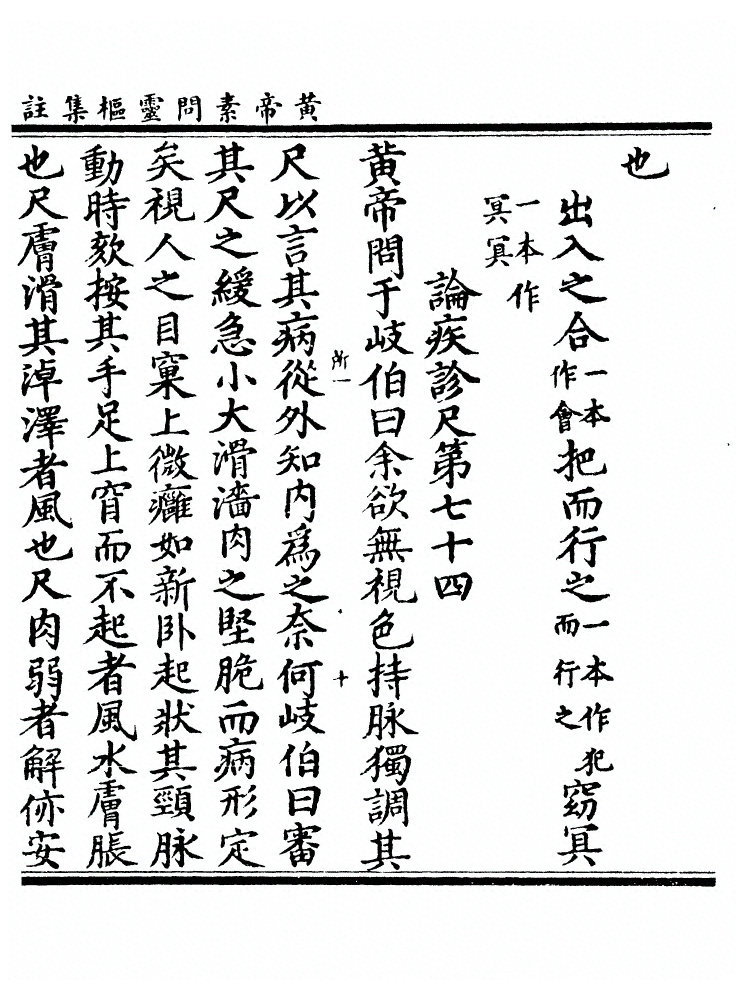 黃帝素問靈樞集註
也
出入之合一本作會把而行之一本作犯而行之窈冥
一本作冥冥
論疾診尺第七十四
黃帝問于岐伯曰余欲無視色持脉獨調其
所一
十
尺以言其病從外知内爲之奈何岐伯曰審
其尺之緩急小大滑濇肉之堅脆而病形定
矣視人之目窠上微癰如新卧起狀其頸脉
動時欬按其手足上窅而不起者風水膚脹
也尺膚滑其淖澤者風也尺肉弱者解㑊安